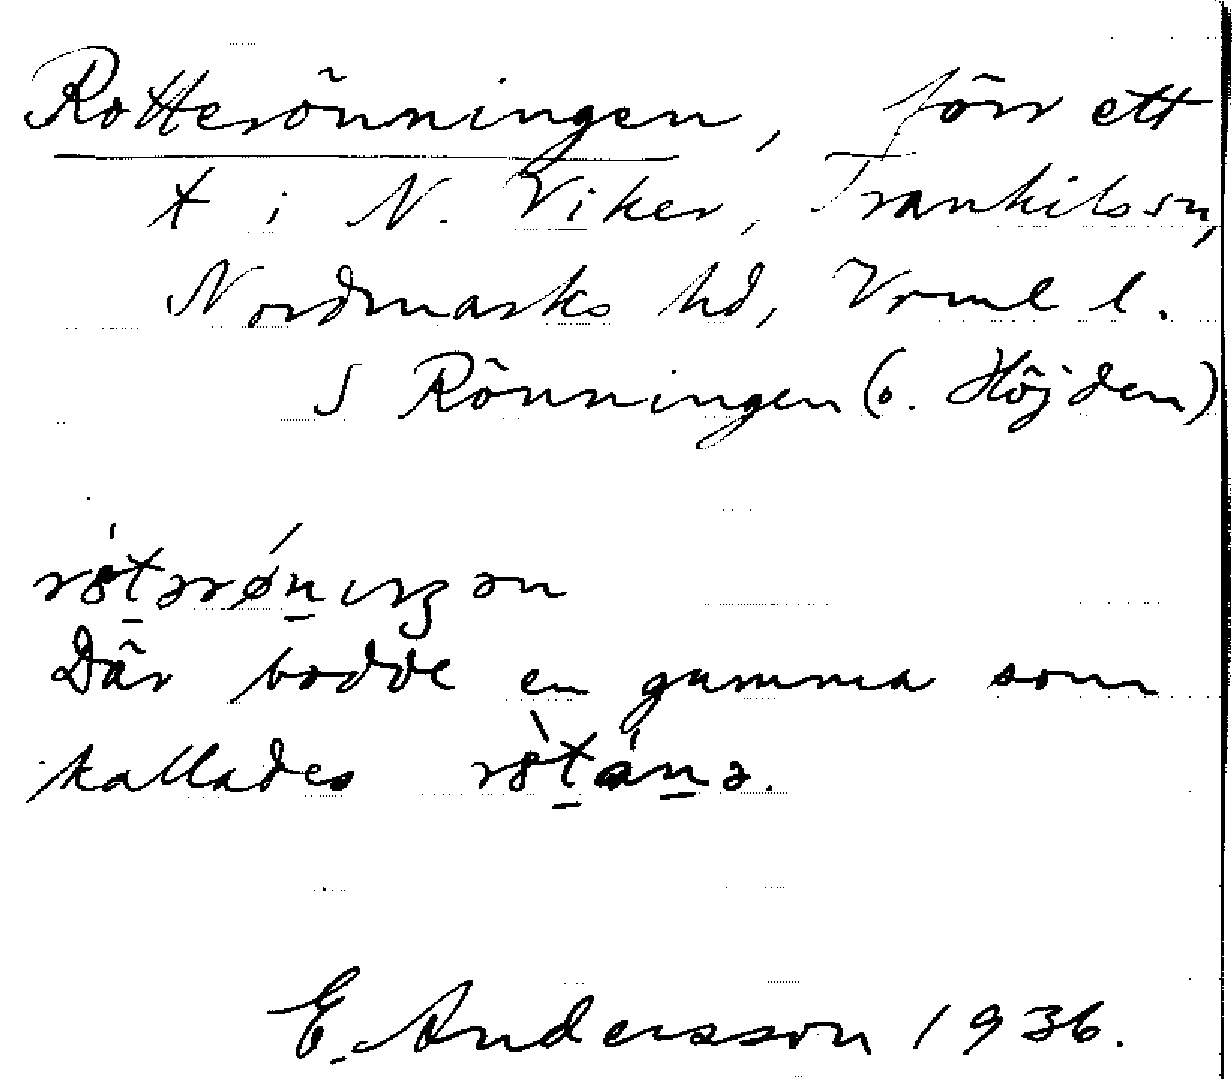 Rotterönningen, förr ett
t i N. Viker, Trankils sn,
Nordmarks hd, Vrml l.
S Rönningen (o. Höjden)
Där bodde en gumma som
kallades
E. Andersson 1936.